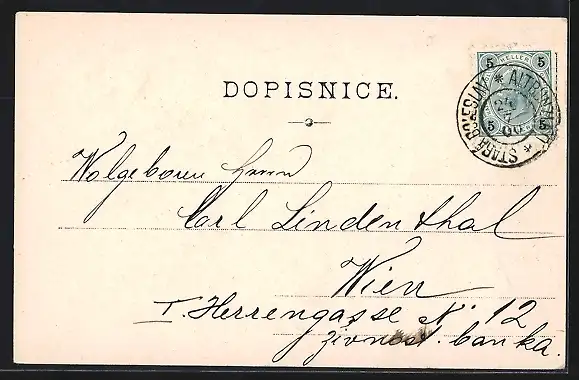 DOPISNICE.
5 HELLER 5
5 5
STARÁ BOLESLAV * ALTBUNZLAU *
24
7
00
Wolgeboren Herrn
Carl Lindenthal
Wien
I. Herrengasse N 12
živnost. banka.